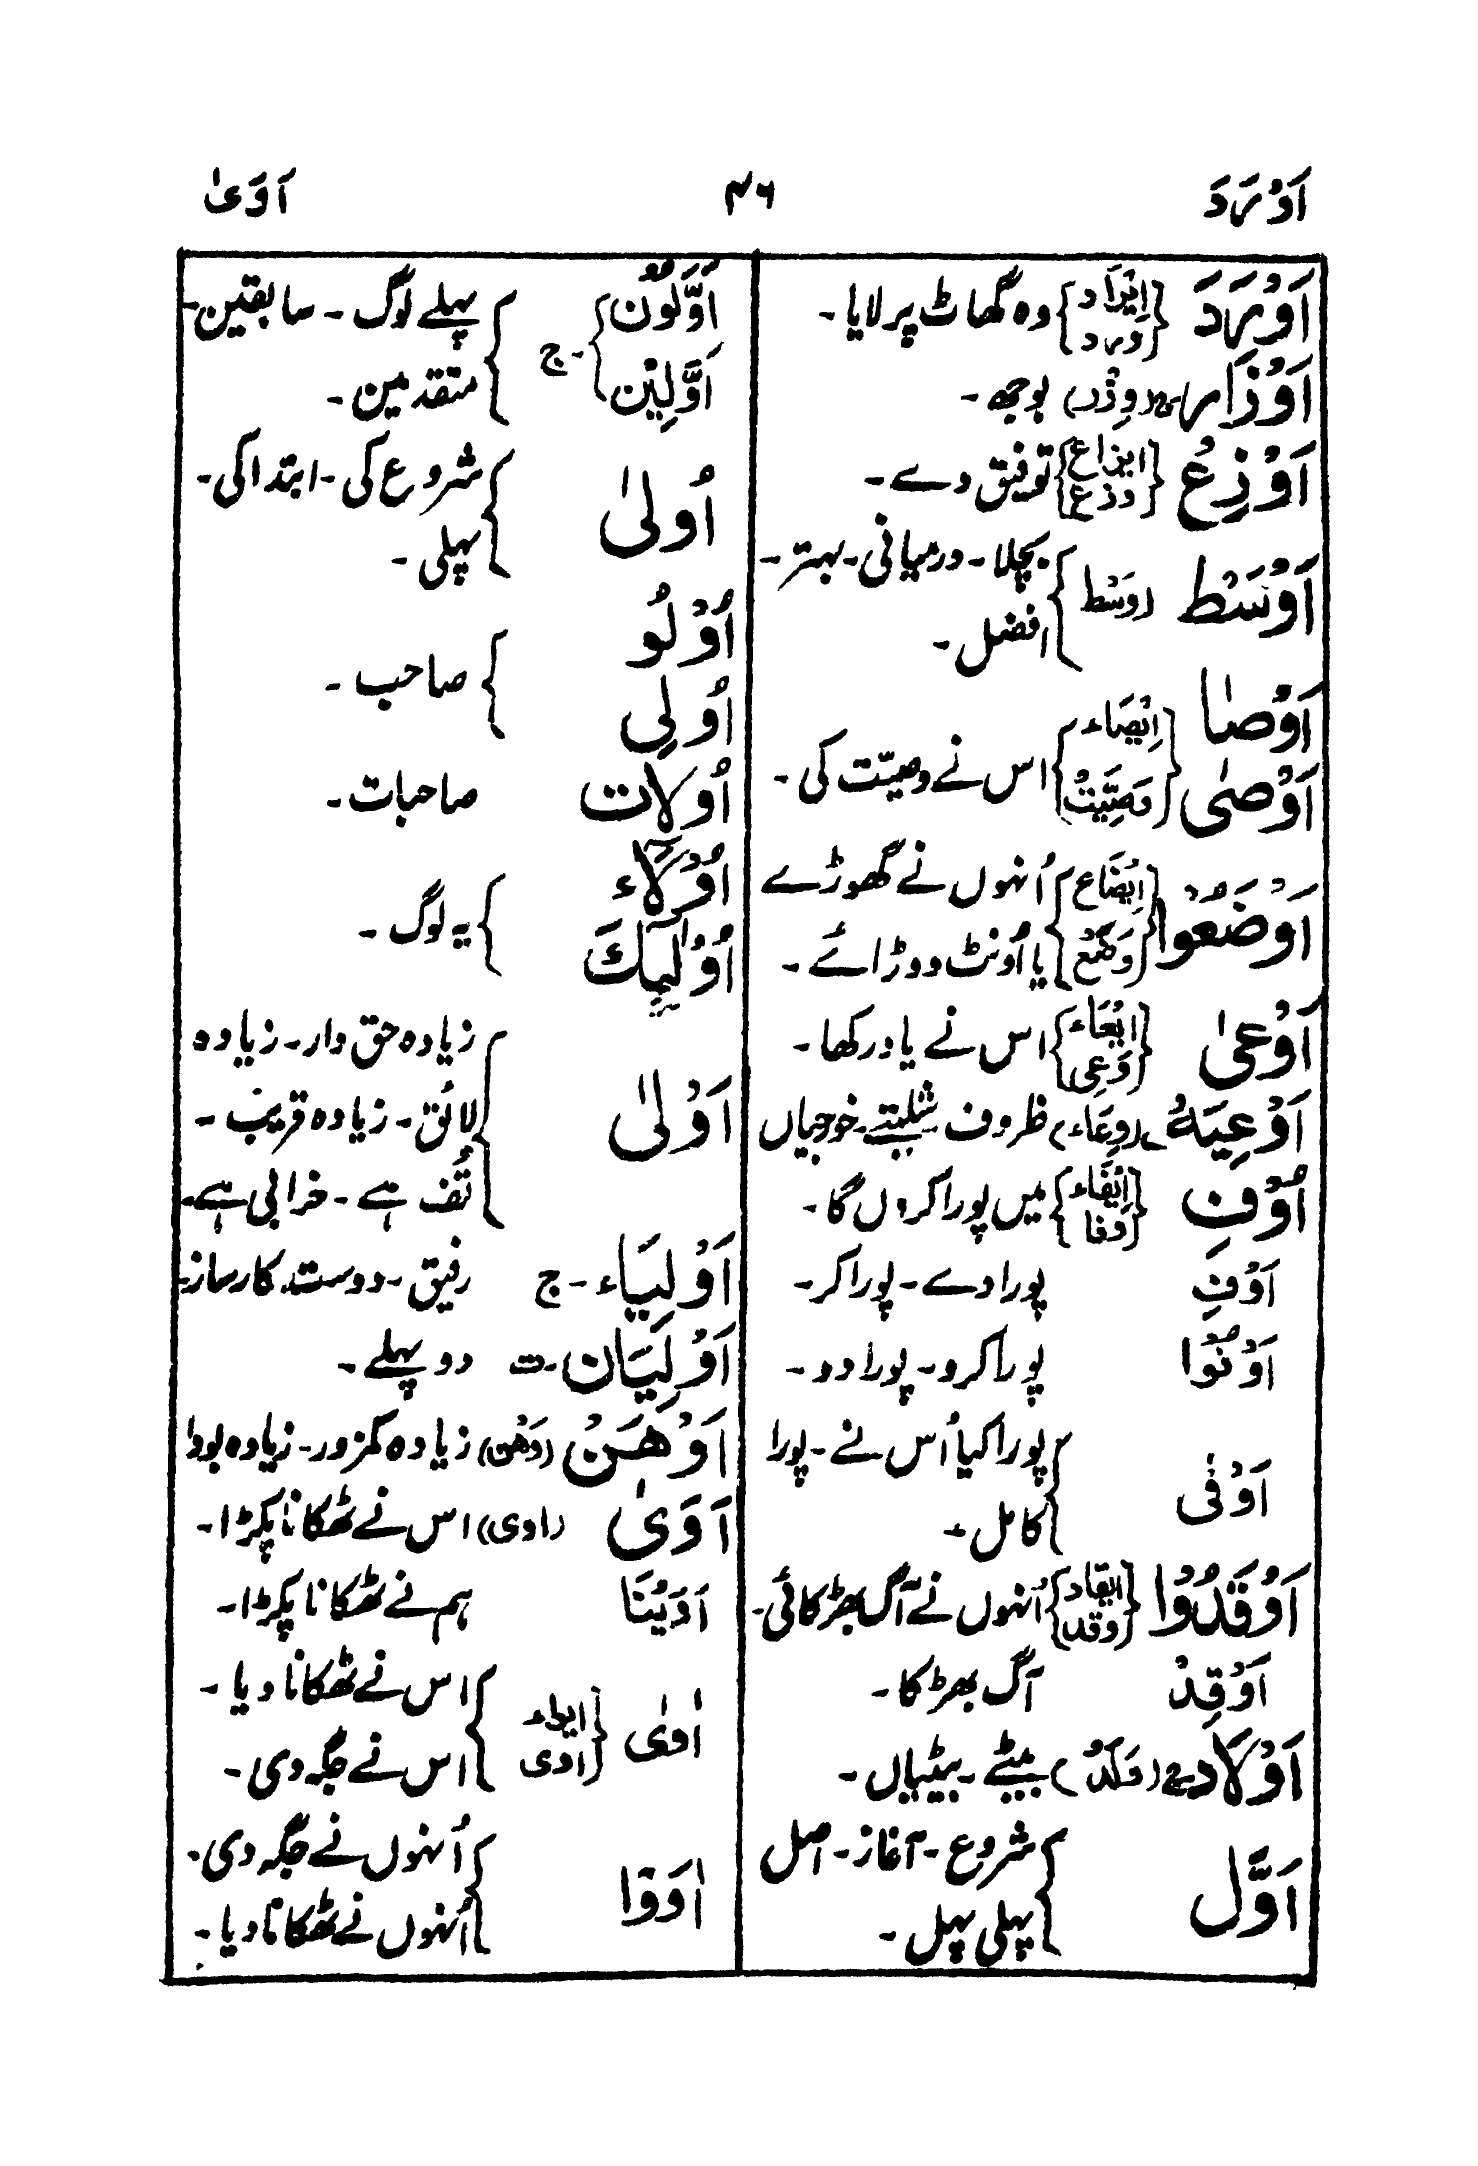 اَوْرَدَ ۴۶ اَوَیٰ
اَوْرَدَ {اِیْرَاد ورد} وہ گھاٹ پر لایا۔
اَوْزَار۔ج (وِزْر) بوجھ۔
اَوْزِعْ {ایزاع وزع} توفیق دے۔
اَوْسَط (وَسَط) بچلا۔ درمیانی۔ بہتر۔
افضل۔
اَوْصَا
اَوْصٰی {اِیْصَاء وَصِیَّتْ} اس نے وصیّت کی۔
اَوْضَعُوْا {اِیْضَاع وَضْع} اُنہوں نے گھوڑے
یا اُونٹ دوڑائے۔
اَوْعیٰ {اِیْعَاء وَعی} اس نے یاد رکھا۔
اَوْعِیَهُ۔ج (وِعَاء) ظروف شلیتے۔ خورجیاں
اُوْفِ {اِیْفَاء وفا} میں پورا کروں گا۔
اَوْفِ پورا دے۔ پورا کر۔
اَوْفُوْا پورا کرو۔ پورا دو۔
اَوْفٰی پورا کیا اُس نے۔ پورا
کامل۔
اَوْقَدُوْا {ایقاد وقد} اُنہوں نے آگ بھڑکائی۔
اَوْقِدْ آگ بھڑکا۔
اَوْلَاد۔ج (وَلَدْ) بیٹے۔ بیٹیاں۔
اَوَّل شروع۔ آغاز۔ اصل
پہلی پہل۔
اَوَّلُوْن
اَوَّلِیْن ۔ج پہلے لوگ۔ سابقین۔
متقدمین۔
اُولیٰ شروع کی۔ ابتدا کی۔
پہلی۔
اُوْلُو
اُولِی صاحب۔
اُولَات صاحبات۔
اُوْلَآء
اُوْلٰٓئِكَ یہ لوگ۔
اَوْلیٰ زیادہ حق دار۔ زیادہ
لائق۔ زیادہ قریب۔
تُف ہے۔ خرابی ہے۔
اَوْلِیَاء۔ ج رفیق۔ دوست۔ کارساز۔
اَوْلِیَان۔ت دو پہلے۔
اَوْهَنْ (وَهْن) زیادہ کمزور۔ زیادہ بودا
اَوَیٰ (اوی) اس نے ٹھکانا پکڑا۔
اَوَیْنَا ہم نے ٹھکانا پکڑا۔
اٰوٰی {ایواء اوی} اس نے ٹھکانا دیا۔
اس نے جگہ دی۔
اٰوَوْا اُنہوں نے جگہ دی۔
اُنہوں نے ٹھکانا دیا۔